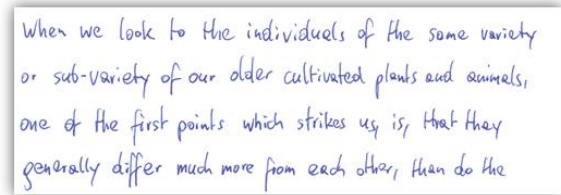 When we look to the individuals of the same variety
or sub-variety of our older cultivated plants and animals,
one of the first points which strikes us, is, that they
generally differ much more from each other, than do the